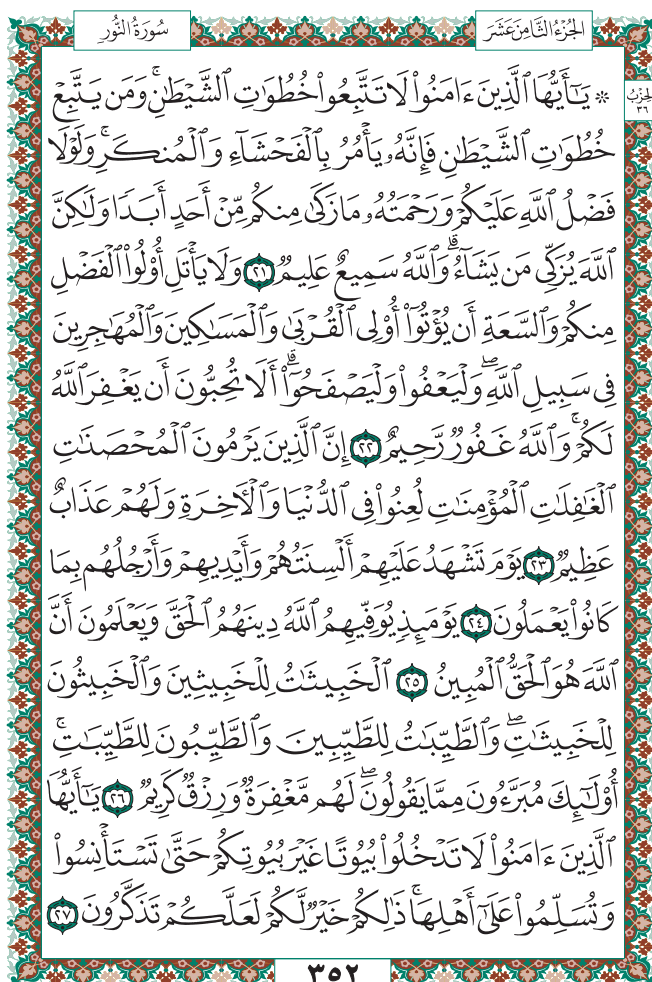 سُورَةُ النُّور
الجُزْءُ الثَّامِنَ عَشَرَ
الحِزْبُ
٣٦
۞ يَـٰٓأَيُّهَا ٱلَّذِينَ ءَامَنُوا۟ لَا تَتَّبِعُوا۟ خُطُوَٰتِ ٱلشَّيْطَـٰنِۚ وَمَن يَتَّبِعْ
خُطُوَٰتِ ٱلشَّيْطَـٰنِ فَإِنَّهُۥ يَأْمُرُ بِٱلْفَحْشَآءِ وَٱلْمُنكَرِۚ وَلَوْلَا
فَضْلُ ٱللَّهِ عَلَيْكُمْ وَرَحْمَتُهُۥ مَا زَكَىٰ مِنكُم مِّنْ أَحَدٍ أَبَدًا وَلَـٰكِنَّ
ٱللَّهَ يُزَكِّى مَن يَشَآءُۗ وَٱللَّهُ سَمِيعٌ عَلِيمٌ ٢١ وَلَا يَأْتَلِ أُو۟لُوا۟ ٱلْفَضْلِ
مِنكُمْ وَٱلسَّعَةِ أَن يُؤْتُوٓا۟ أُو۟لِى ٱلْقُرْبَىٰ وَٱلْمَسَـٰكِينَ وَٱلْمُهَـٰجِرِينَ
فِى سَبِيلِ ٱللَّهِۖ وَلْيَعْفُوا۟ وَلْيَصْفَحُوٓا۟ۗ أَلَا تُحِبُّونَ أَن يَغْفِرَ ٱللَّهُ
لَكُمْۚ وَٱللَّهُ غَفُورٌ رَّحِيمٌ ٢٢ إِنَّ ٱلَّذِينَ يَرْمُونَ ٱلْمُحْصَنَـٰتِ
ٱلْغَـٰفِلَـٰتِ ٱلْمُؤْمِنَـٰتِ لُعِنُوا۟ فِى ٱلدُّنْيَا وَٱلْـَٔاخِرَةِ وَلَهُمْ عَذَابٌ
عَظِيمٌ ٢٣ يَوْمَ تَشْهَدُ عَلَيْهِمْ أَلْسِنَتُهُمْ وَأَيْدِيهِمْ وَأَرْجُلُهُم بِمَا
كَانُوا۟ يَعْمَلُونَ ٢٤ يَوْمَئِذٍ يُوَفِّيهِمُ ٱللَّهُ دِينَهُمُ ٱلْحَقَّ وَيَعْلَمُونَ أَنَّ
ٱللَّهَ هُوَ ٱلْحَقُّ ٱلْمُبِينُ ٢٥ ٱلْخَبِيثَـٰتُ لِلْخَبِيثِينَ وَٱلْخَبِيثُونَ
لِلْخَبِيثَـٰتِۖ وَٱلطَّيِّبَـٰتُ لِلطَّيِّبِينَ وَٱلطَّيِّبُونَ لِلطَّيِّبَـٰتِۚ
أُو۟لَـٰٓئِكَ مُبَرَّءُونَ مِمَّا يَقُولُونَۖ لَهُم مَّغْفِرَةٌ وَرِزْقٌ كَرِيمٌ ٢٦ يَـٰٓأَيُّهَا
ٱلَّذِينَ ءَامَنُوا۟ لَا تَدْخُلُوا۟ بُيُوتًا غَيْرَ بُيُوتِكُمْ حَتَّىٰ تَسْتَأْنِسُوا۟
وَتُسَلِّمُوا۟ عَلَىٰٓ أَهْلِهَاۚ ذَٰلِكُمْ خَيْرٌ لَّكُمْ لَعَلَّكُمْ تَذَكَّرُونَ ٢٧
٣٥٢